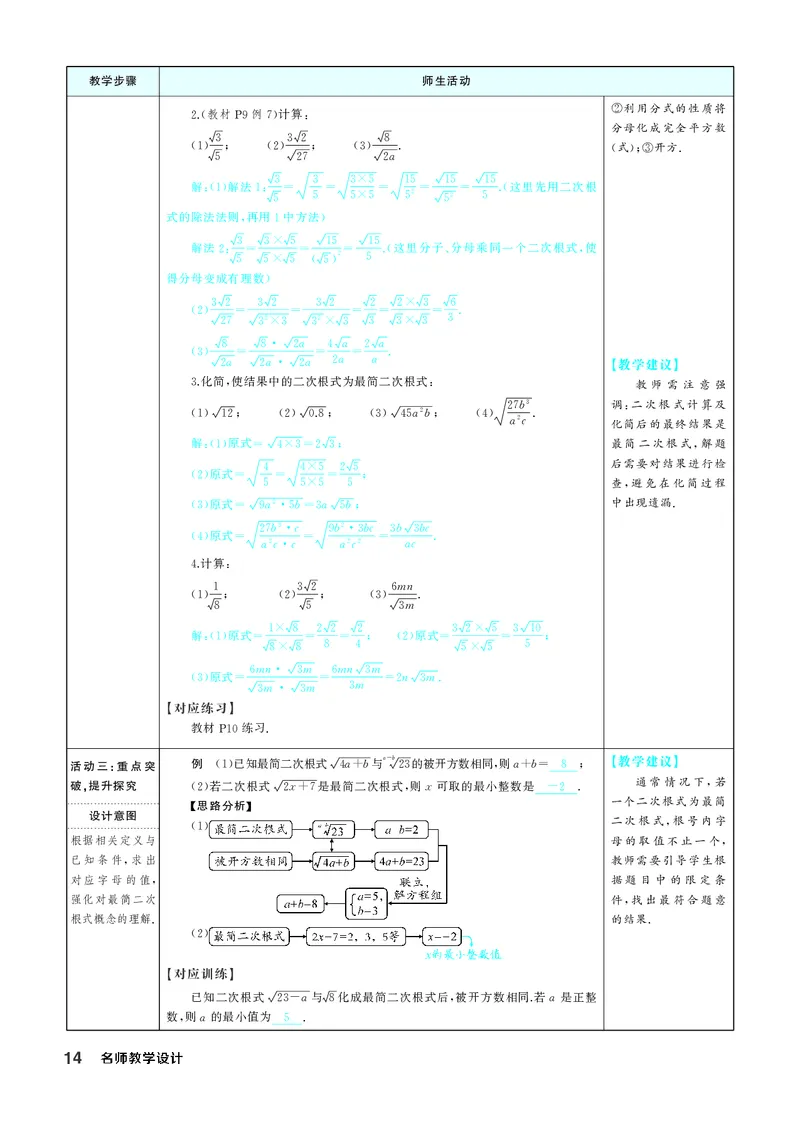 教学步骤 师生活动
2.(教材 P9 例 7)计算:
(1)√3/√5; (2)3√2/√27; (3)√8/√2a.
解:(1)解法 1:√3/√5=√(3/5)=√((3×5)/(5×5))=√(15/5²)=√15/√5²=√15/5.(这里先用二次根
式的除法法则,再用 1 中方法)
解法 2:√3/√5=(√3×√5)/(√5×√5)=√15/(√5)²=√15/5.(这里分子、分母乘同一个二次根式,使
得分母变成有理数)
(2)3√2/√27=3√2/√(3²×3)=3√2/(√3²×√3)=√2/√3=(√2×√3)/(√3×√3)=√6/3.
(3)√8/√2a=(√8·√2a)/(√2a·√2a)=4√a/2a=2√a/a.
3.化简,使结果中的二次根式为最简二次根式:
(1)√12; (2)√0.8; (3)√(45a²b); (4)√(27b³/a²c).
解:(1)原式=√(4×3)=2√3;
(2)原式=√(4/5)=√((4×5)/(5×5))=2√5/5;
(3)原式=√(9a²·5b)=3a√5b;
(4)原式=√((27b³·c)/(a²c·c))=√((9b²·3bc)/(a²c²))=3b√3bc/ac.
4.计算:
(1)1/√8; (2)3√2/√5; (3)6mn/√3m.
解:(1)原式=(1×√8)/(√8×√8)=2√2/8=√2/4; (2)原式=(3√2×√5)/(√5×√5)=3√10/5;
(3)原式=(6mn·√3m)/(√3m·√3m)=6mn√3m/3m=2n√3m.
【对应练习】
教材 P10 练习.
②利用分式的性质将
分母化成完全平方数
(式);③开方.
【教学建议】
教师需注意强
调:二次根式计算及
化简后的最终结果是
最简二次根式,解题
后需要对结果进行检
查,避免在化简过程
中出现遗漏.
活动三:重点突
破,提升探究
设计意图
根据相关定义与
已知条件,求出
对应字母的值,
强化对最简二次
根式概念的理解.
例 (1)已知最简二次根式 √(4a+b) 与 ᵃ⁻ᵇ√23的被开方数相同,则 a+b= 8 ;
(2)若二次根式 √(2x+7)是最简二次根式,则 x 可取的最小整数是 -2 .
【思路分析】
(1) 最简二次根式 ᵃ ᵇ√23 a b=2
被开方数相同 √(4a+b) 4a+b=23
联立,
解方程组
a+b-8 {a=5,
b-3
(2) 最简二次根式 2x-7=2, 3, 5等 x--2
x的最小整数值
【对应训练】
已知二次根式 √(23-a) 与√8 化成最简二次根式后,被开方数相同.若 a 是正整
数,则 a 的最小值为 5 .
【教学建议】
通常情况下,若
一个二次根式为最简
二次根式,根号内字
母的取值不止一个,
教师需要引导学生根
据题目中的限定条
件,找出最符合题意
的结果.
14 名师教学设计